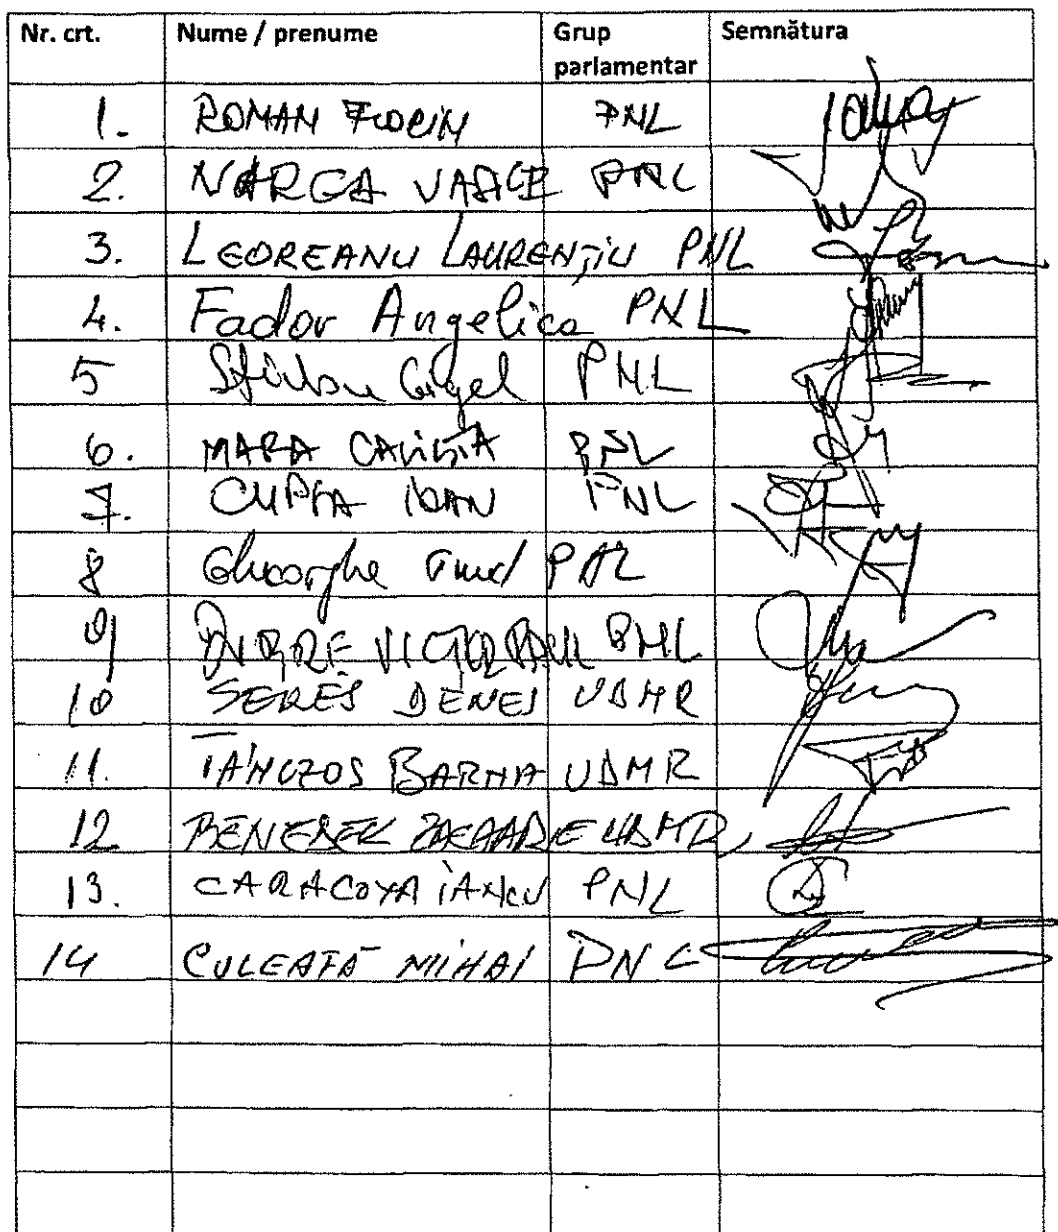 Nr. crt. Nume / prenume Grup parlamentar Semnătura
1. ROMAN FLORIN PNL
2. VARGA VASILE PNL
3. LEOREANU LAURENȚIU PNL
4. Fador Angelica PNL
5 Știrbu Gigel PNL
6. MARA PNL
7. CUPȘA IOAN PNL
8 Gheorghe PNL
9 VICTOR PAUL PNL
10 SERES DENES UDMR
11. TÁNCZOS BARNA UDMR
12 BENEDEK ZACARIE UDMR
13. CARACOTA IANCU PNL
14 CULEAFĂ MIHAI PNL